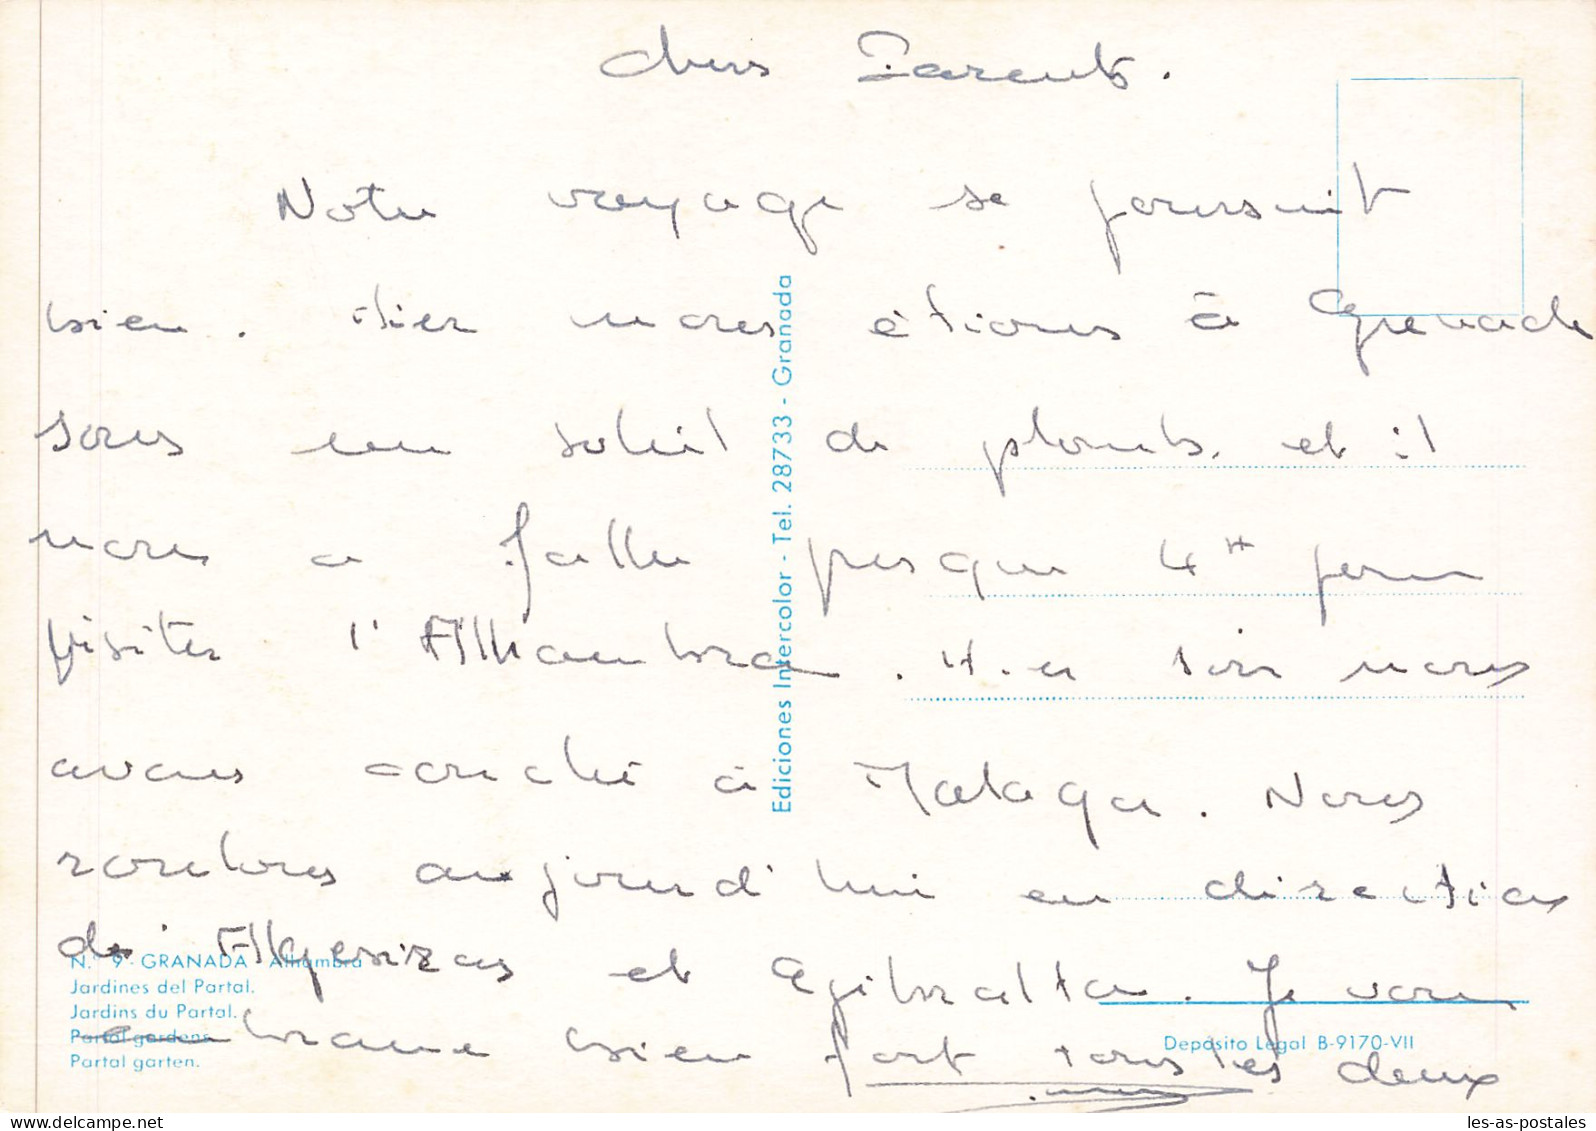 Chers Parents.
Notre voyage se poursuit
bien. Hier nous étions à Grenade
sous un soleil de plomb, et il
nous a fallu presque 4 H pour
visiter l'Alhambra. Hier soir nous
avons couché à Malaga. Nous
roulons aujourd'hui en direction
de Algesiras et Gibraltar. Je vous
embrasse bien fort tous les deux
Ediciones Intercolor - Tel. 28733 - Granada
N.° 9 - GRANADA - Alhambra
Jardines del Partal.
Jardins du Partal.
Partal gardens.
Partal garten.
Depósito Legal B-9170-VII
les-as-postales